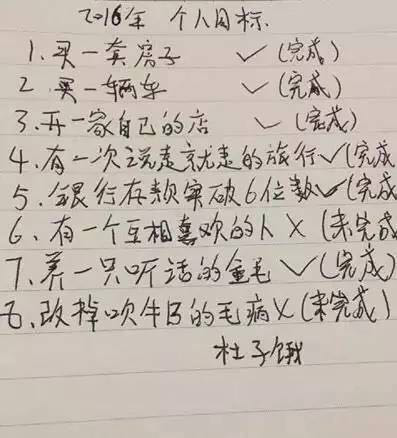 2016年 个人目标
1.买一套房子 ✓(完成)
2 买一辆车 ✓(完成)
3.开一家自己的店 ✓(完成)
4.有一次说走就走的旅行✓(完成
5.银行存款突破6位数✓(完成
6、有一个互相喜欢的人 X (未完成
7、养一只听话的金毛 ✓(完成)
8.改掉吹牛B的毛病X(未完成)
杜子饿